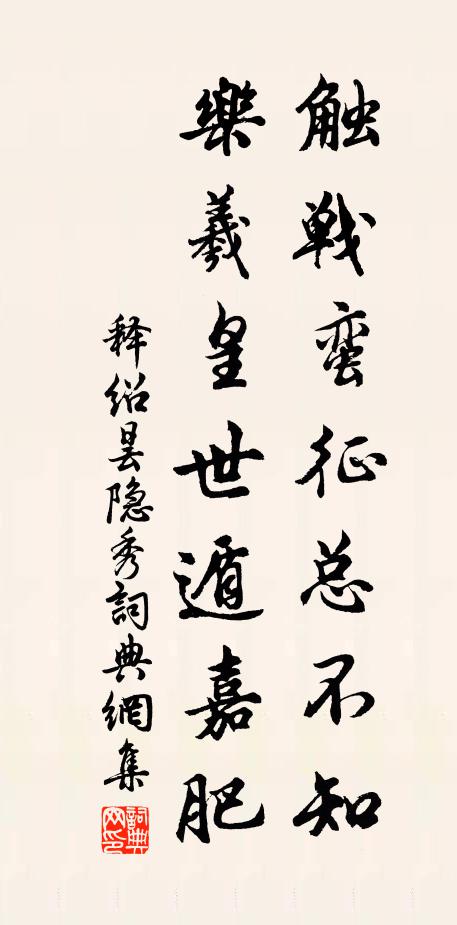 触戦蛮征总不知
樂羲皇世遁嘉肥
释绍昙隐秀詞典網集
詞典網印